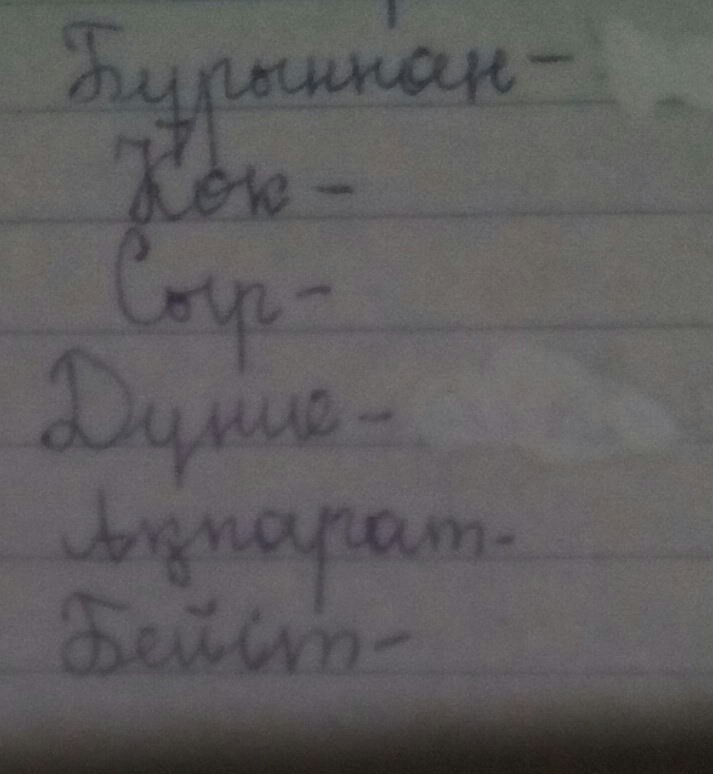 Бурыннан -
Көк -
Сыр -
Дүние -
Ақпарат -
Бейіт -